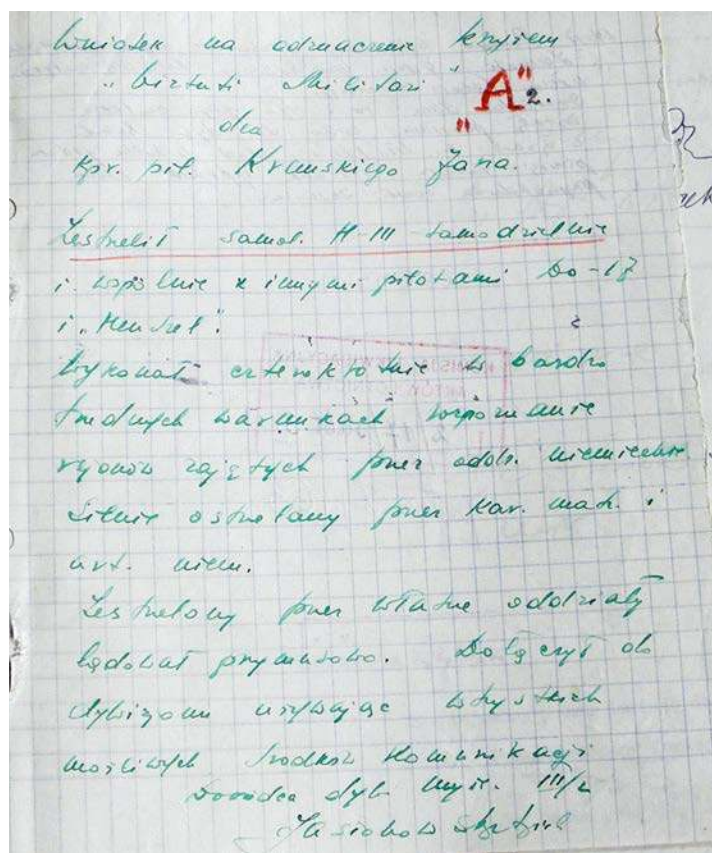 Wniosek na odznaczenie krzyżem
"Virtuti Militari"
"A" 2.
dla
Kpr. pil. Kremskiego Jana.
Zestrzelił samol. H-111 samodzielnie
i wspólnie z innymi pilotami Do-17
i "Henschel".
Wykonał czterokrotnie w bardzo
trudnych warunkach rozpoznanie
rejonów zajętych przez oddz. niemieckie
silnie ostrzelany przez kar. masz. i
art. niem.
Zestrzelony przez własne oddziały
lądował przymusowo. Dołączył do
dywizjonu używając wszystkich
możliwych środków komunikacji
Dowódca dyw. myśl. III/2